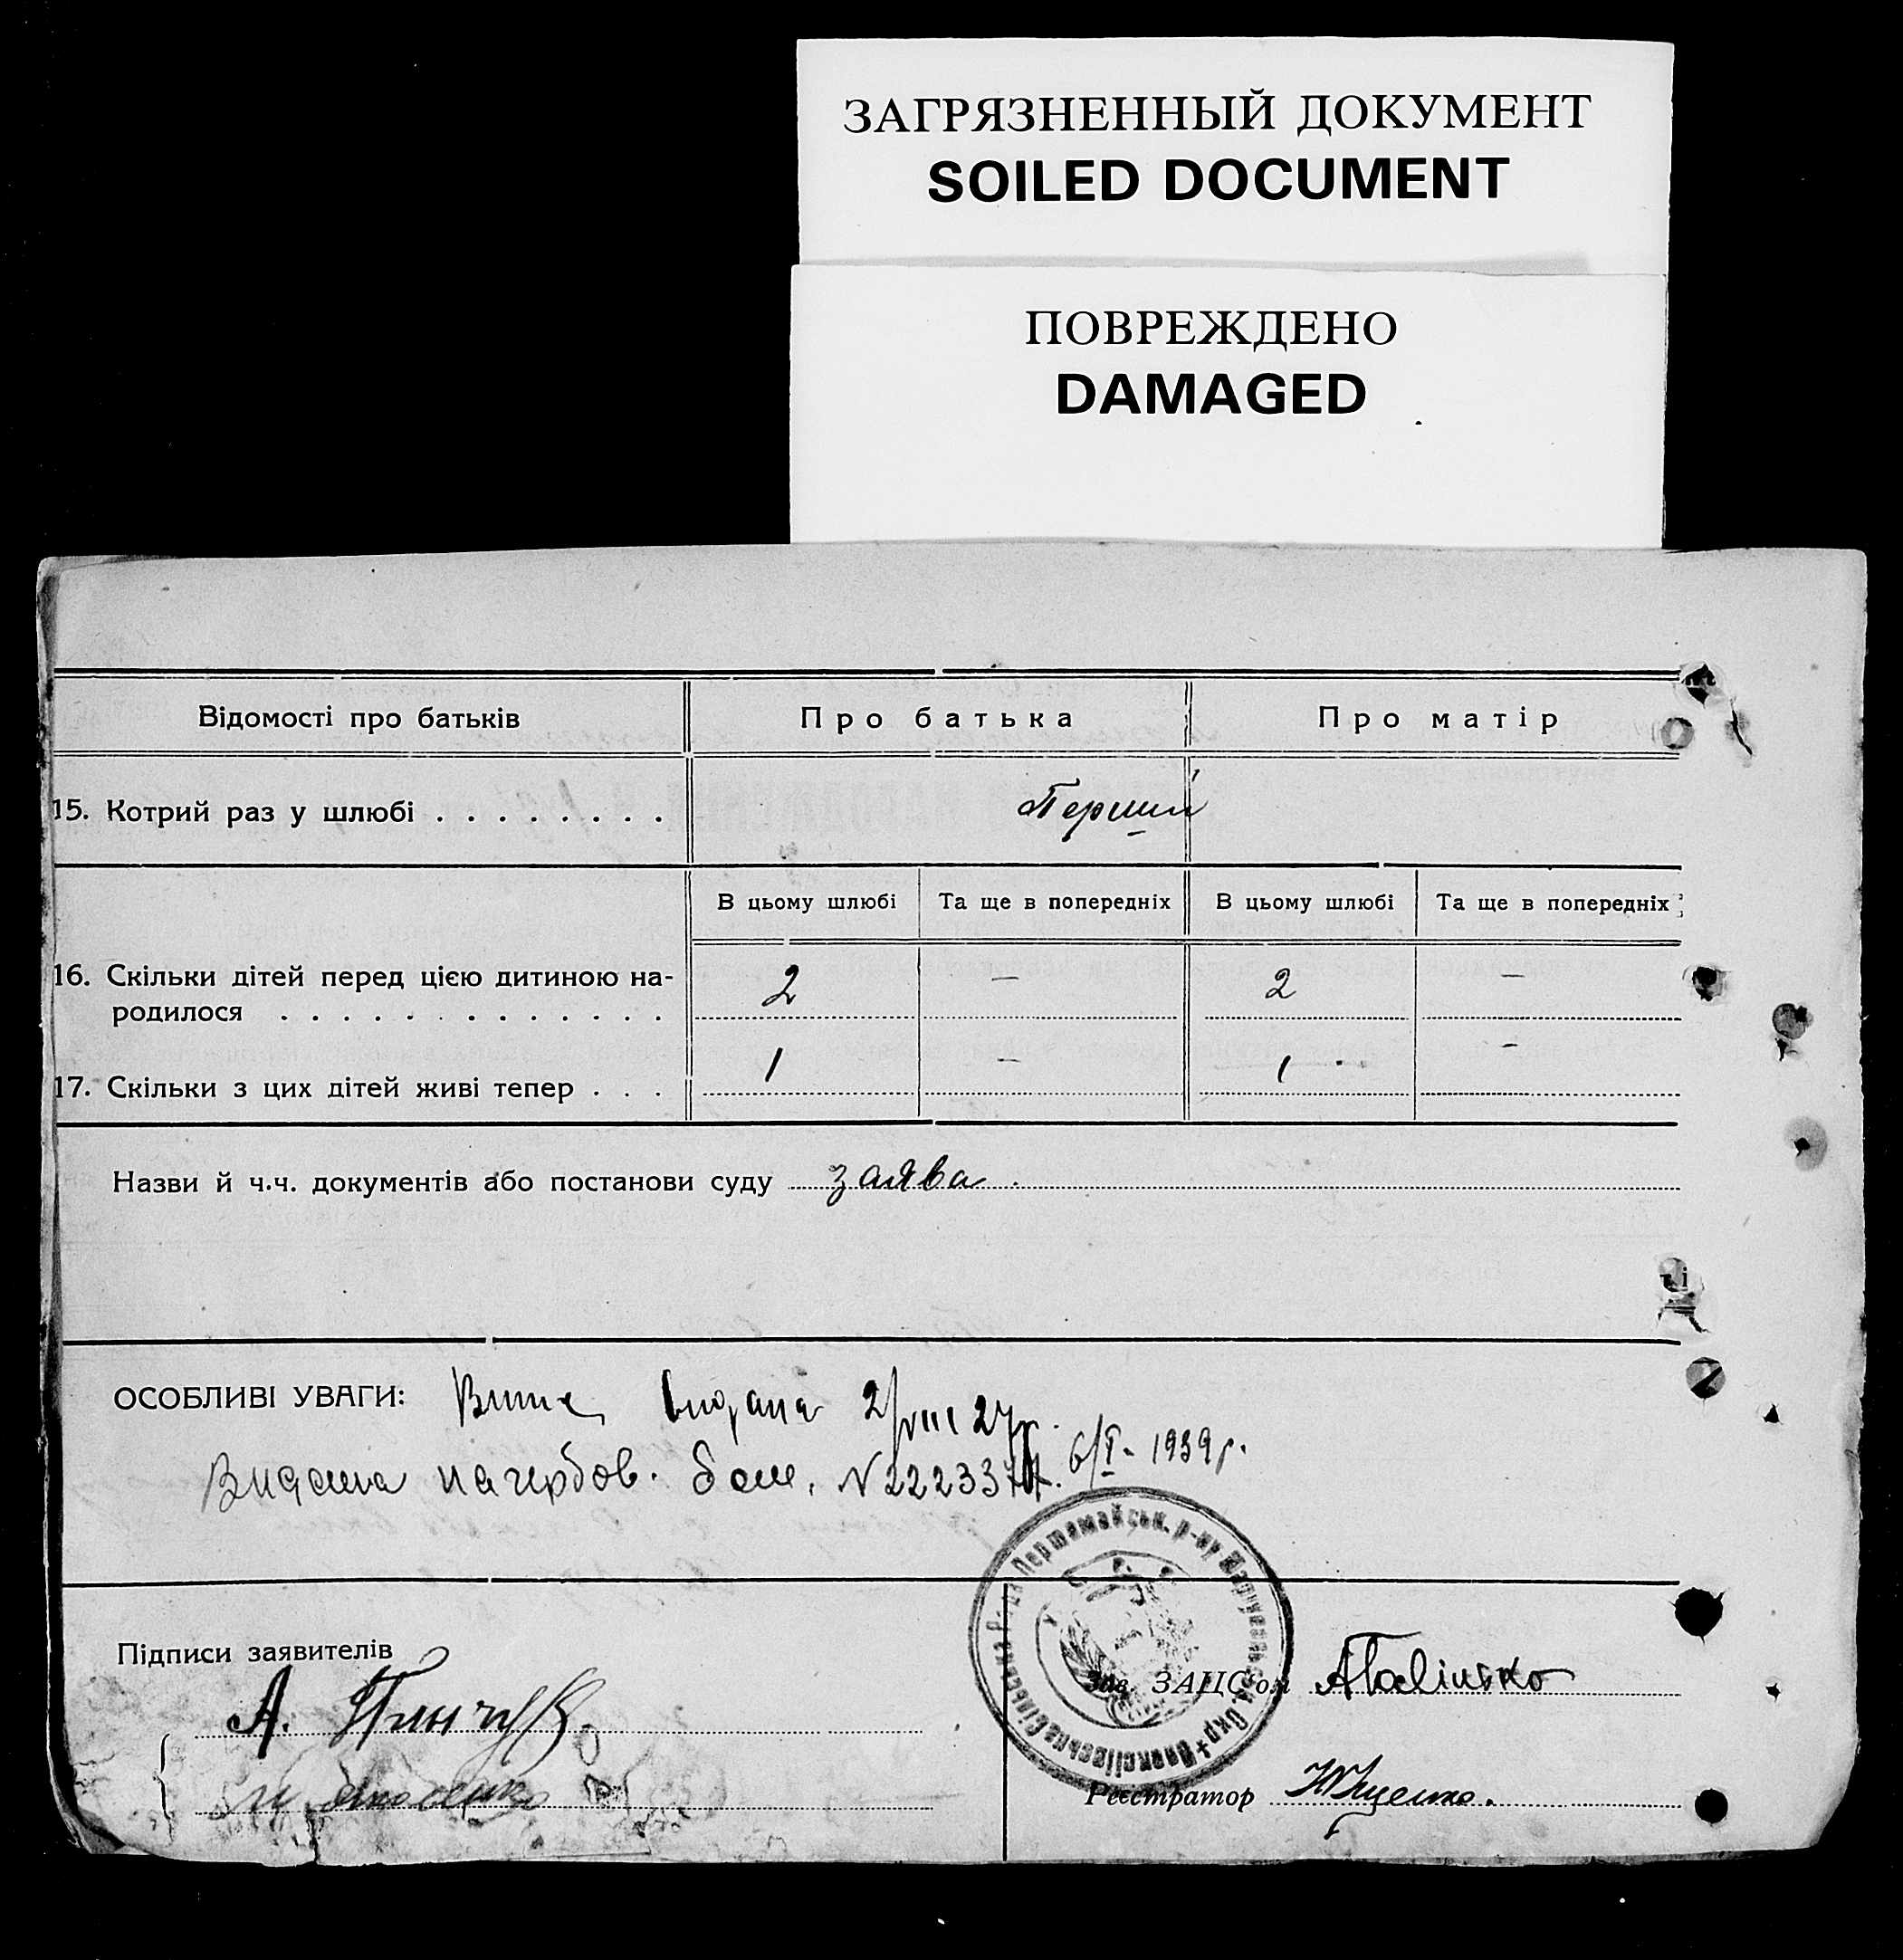 ЗАГРЯЗНЕННЫЙ ДОКУМЕНТ
SOILED DOCUMENT
ПОВРЕЖДЕНО
DAMAGED
Відомості про батьків Про батька Про матір
15. Котрий раз у шлюбі . . . . . . . . Перший
В цьому шлюбі Та ще в попередніх В цьому шлюбі Та ще в попередніх
16. Скільки дітей перед цією дитиною на- 2 — 2 —
родилося . . . . . . . . . . . . .
17. Скільки з цих дітей живі тепер . . . 1 — 1 -
Назви й ч.ч. документів або постанови суду заява
ОСОБЛИВІ УВАГИ: видана 2/VIII 27р.
Видана 6/I - 1939р.
Першамайськ. р-ну
Підписи заявителів
А.
Зав. ЗАЦСом
Реєстратор